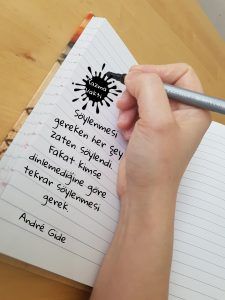 Yazma
Vakti
Söylenmesi
gereken her şey
zaten söylendi.
Fakat kimse
dinlemediğine göre
tekrar söylenmesi
gerek.
André Gide